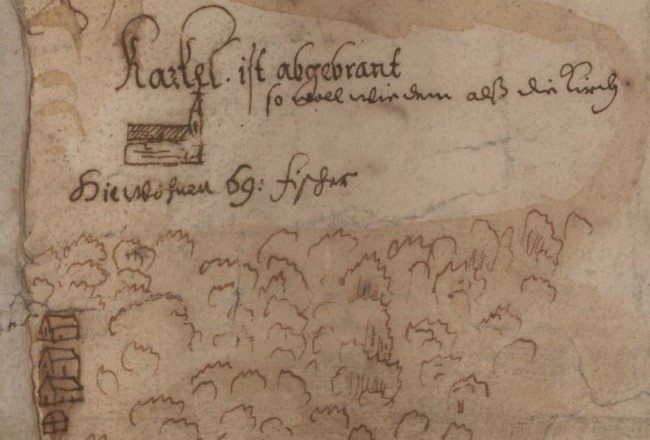 Karkel ist abgebrant
so woll wiedem alß die Kirch
Hie wohnen 69: fischer